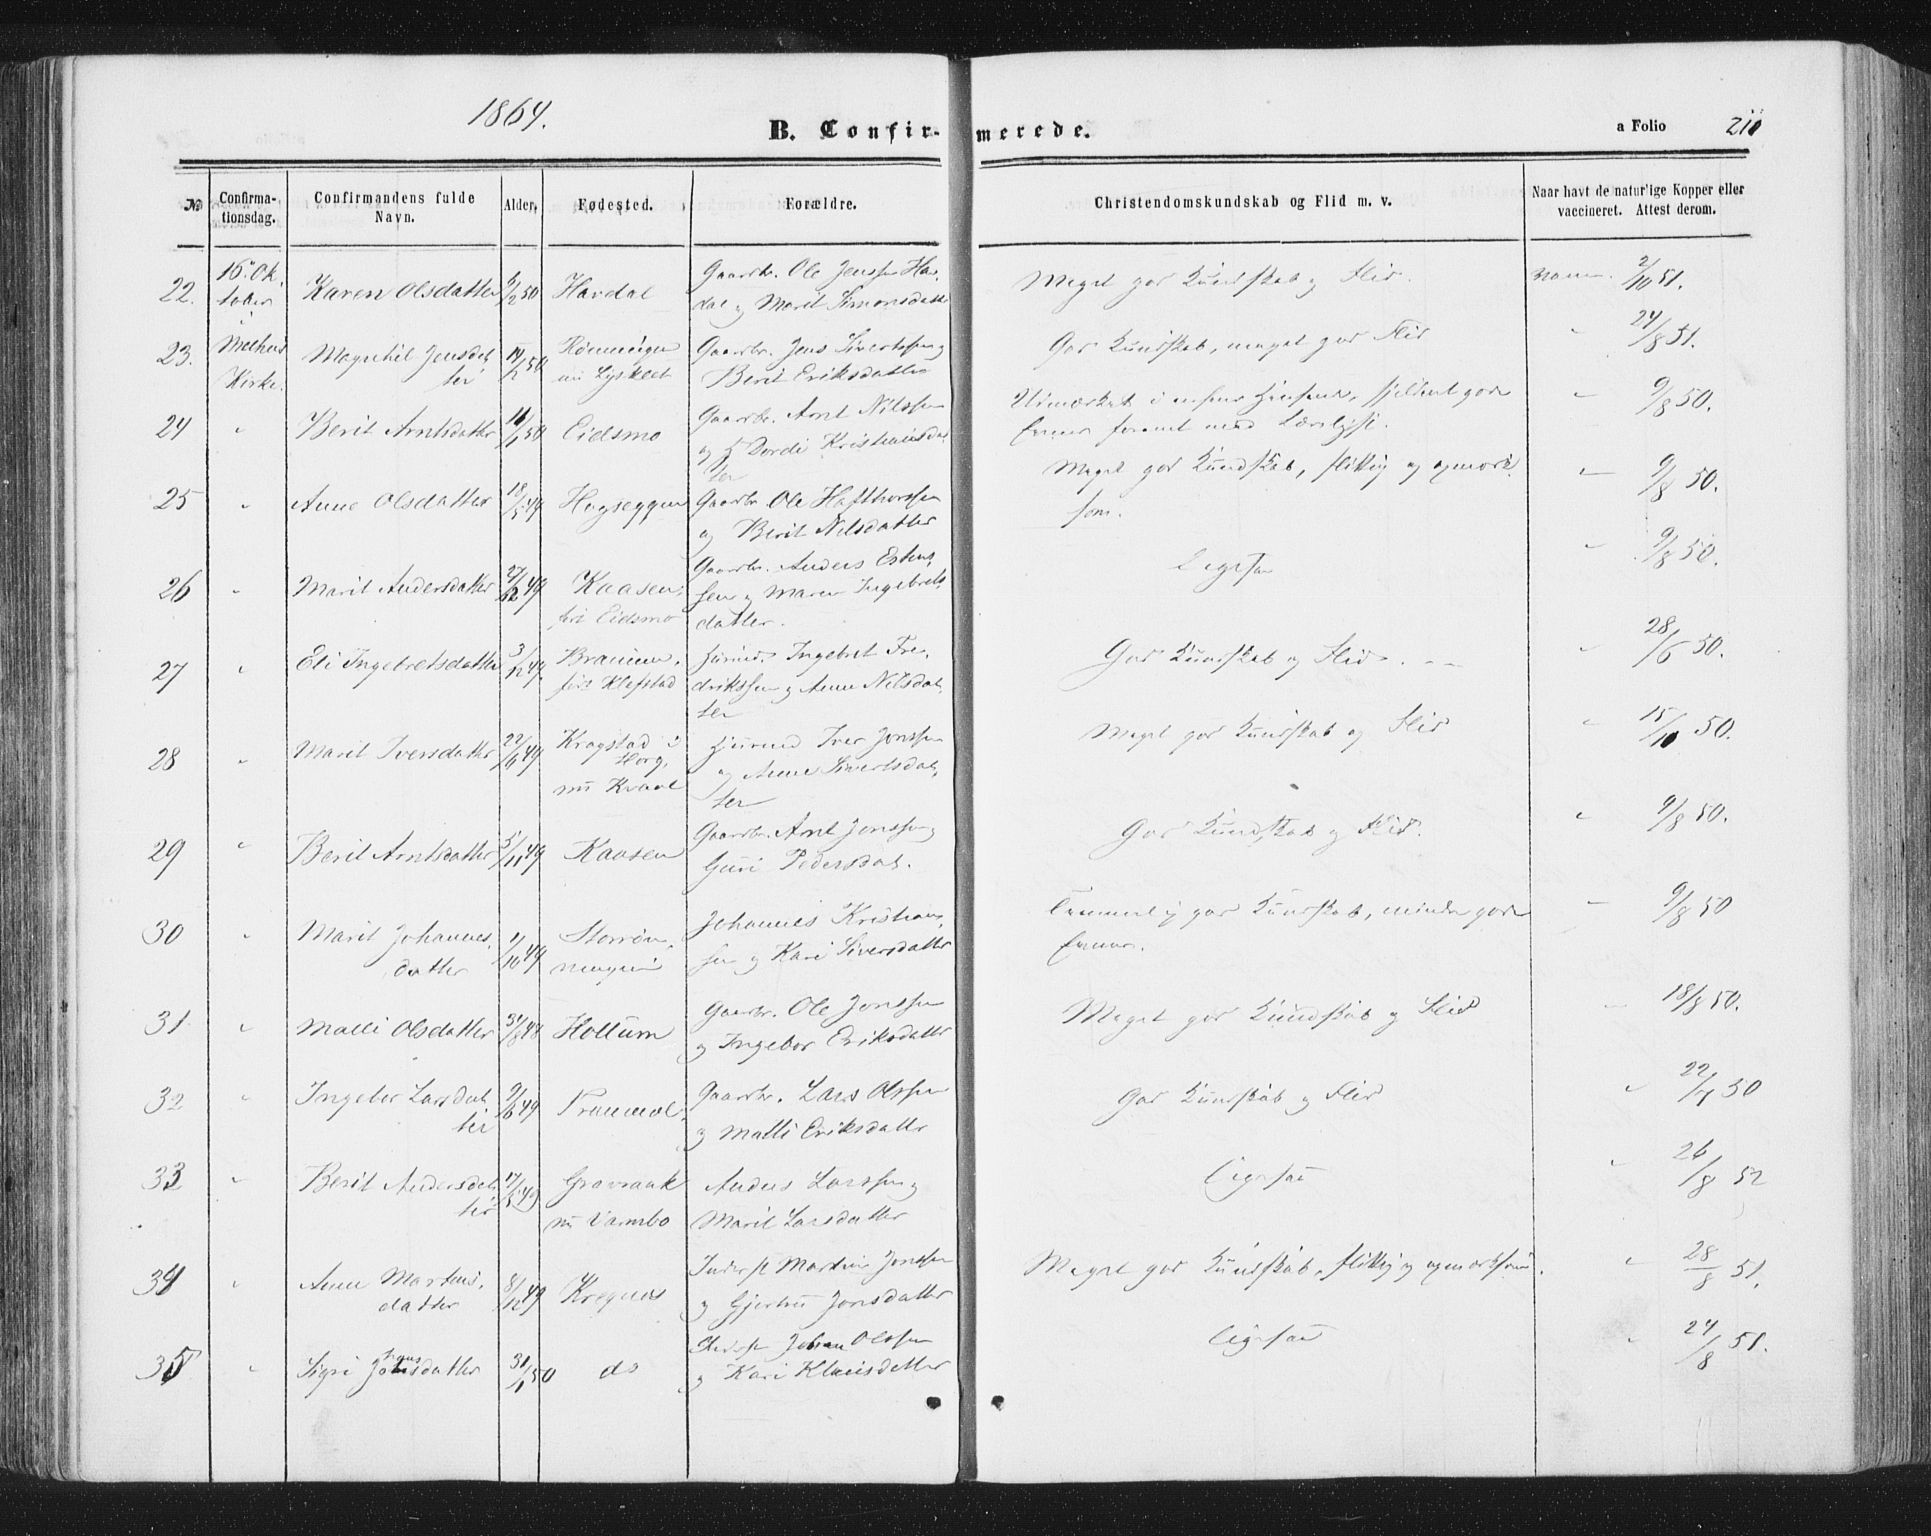 1864.
B. Confir-merede.
a Folio 210
No
Confirma-
tionsdag.
Confirmandens fulde
Navn.
Alder.
Fødested.
Forældre.
Christendomskundskab og Flid m. v.
Naar havt de naturlige Kopper eller
vaccineret. Attest derom.
22. 16. Ok.
tober Karen Olsdatter 50 Havdal
Gaardbr. Ole Jenssen Hav-
dal og Marit Simonsdatter
Meget god Kundskab og Flid. 2/10 51.
23. Meehus
Kirke. Magnhil Jensdat
ter 50
nu Lyskleet
Gaardbr. Jens Sivertssen og
Berit Eriksdatter
God Kundskab, meget god Flid " 24/8 51.
24 " Berit Arntsdatter 50 Eidsmo
Gaardbr. Arnt Nilssen
og Dordi Kristiansdat
ter
gode
Evner forenet med
" 9/8 50.
25 " Anne Olsdatter 18/5 49 Hogseggen
Gaardbr. Ole Hafthorssen
og Berit Nilsdatter
Meget god Kundskab, flittig og opmærk
som.
" 9/8 50.
26 " Marit Andersdatter 27/12 49 Kaasen
Eidsmo
Gaardbr. Anders Estens
sen og Maren Ingebrets
datter.
Ligesaa " 9/8 50.
27 " Eli Ingebretsdatter 3/12 49.
Klefstad
Ingebret Fre-
drikssen og Anne Nilsdat
ter
God Kundskab og Flid. " 28/6 50.
28 " Marit Iversdatter 22/6 49 Krogstad i
Horg,
nu Kvaal
Iver Jonssen
og Anne Sivertsdat
ter
Meget god Kundskab og Flid " 15/10 50.
29 " Berit Arntsdatter 5/11 49 Kaasen
Gaardbr. Arnt Jonssen og
Guri Pedersdat.
God Kundskab og Flid. " 9/8 50.
30 " Marit Johannes
datter 49
Johannes Kristians
sen og Kari Siversdatter
Temmelig god Kundskab, mindre gode
Evner.
" 9/8 50
31 " Malli Olsdatter 31/8 48 Hollum
Gaardbr. Ole Jonssen
og Ingebor Eriksdatter
Meget god Kundskab og Flid " 18/8 50.
32 " Ingebor Larsdat
ter 9/6 49
Gaardbr. Lars Olssen
og Malli Eriksdatter
God Kundskab og Flid " 50
33 " Berit Andersdat
ter 17/5 49 Gravraak
nu Varmbo
Anders Larssen og
Marit Larsdatter
Ligesaa " 26/8 52
34 " Anne Martins
datter 8/12 49 Kregnes
Inderst Martin Jonssen
og Gjertru Jonsdatter
Meget god Kundskab, flittig og opmærksom. " 28/8 51.
35 " Sigri Johansdatter 31/1 50 do
Inderst Johan Olssen
og Kari Klausdatter
Ligesaa " 24/8 51.